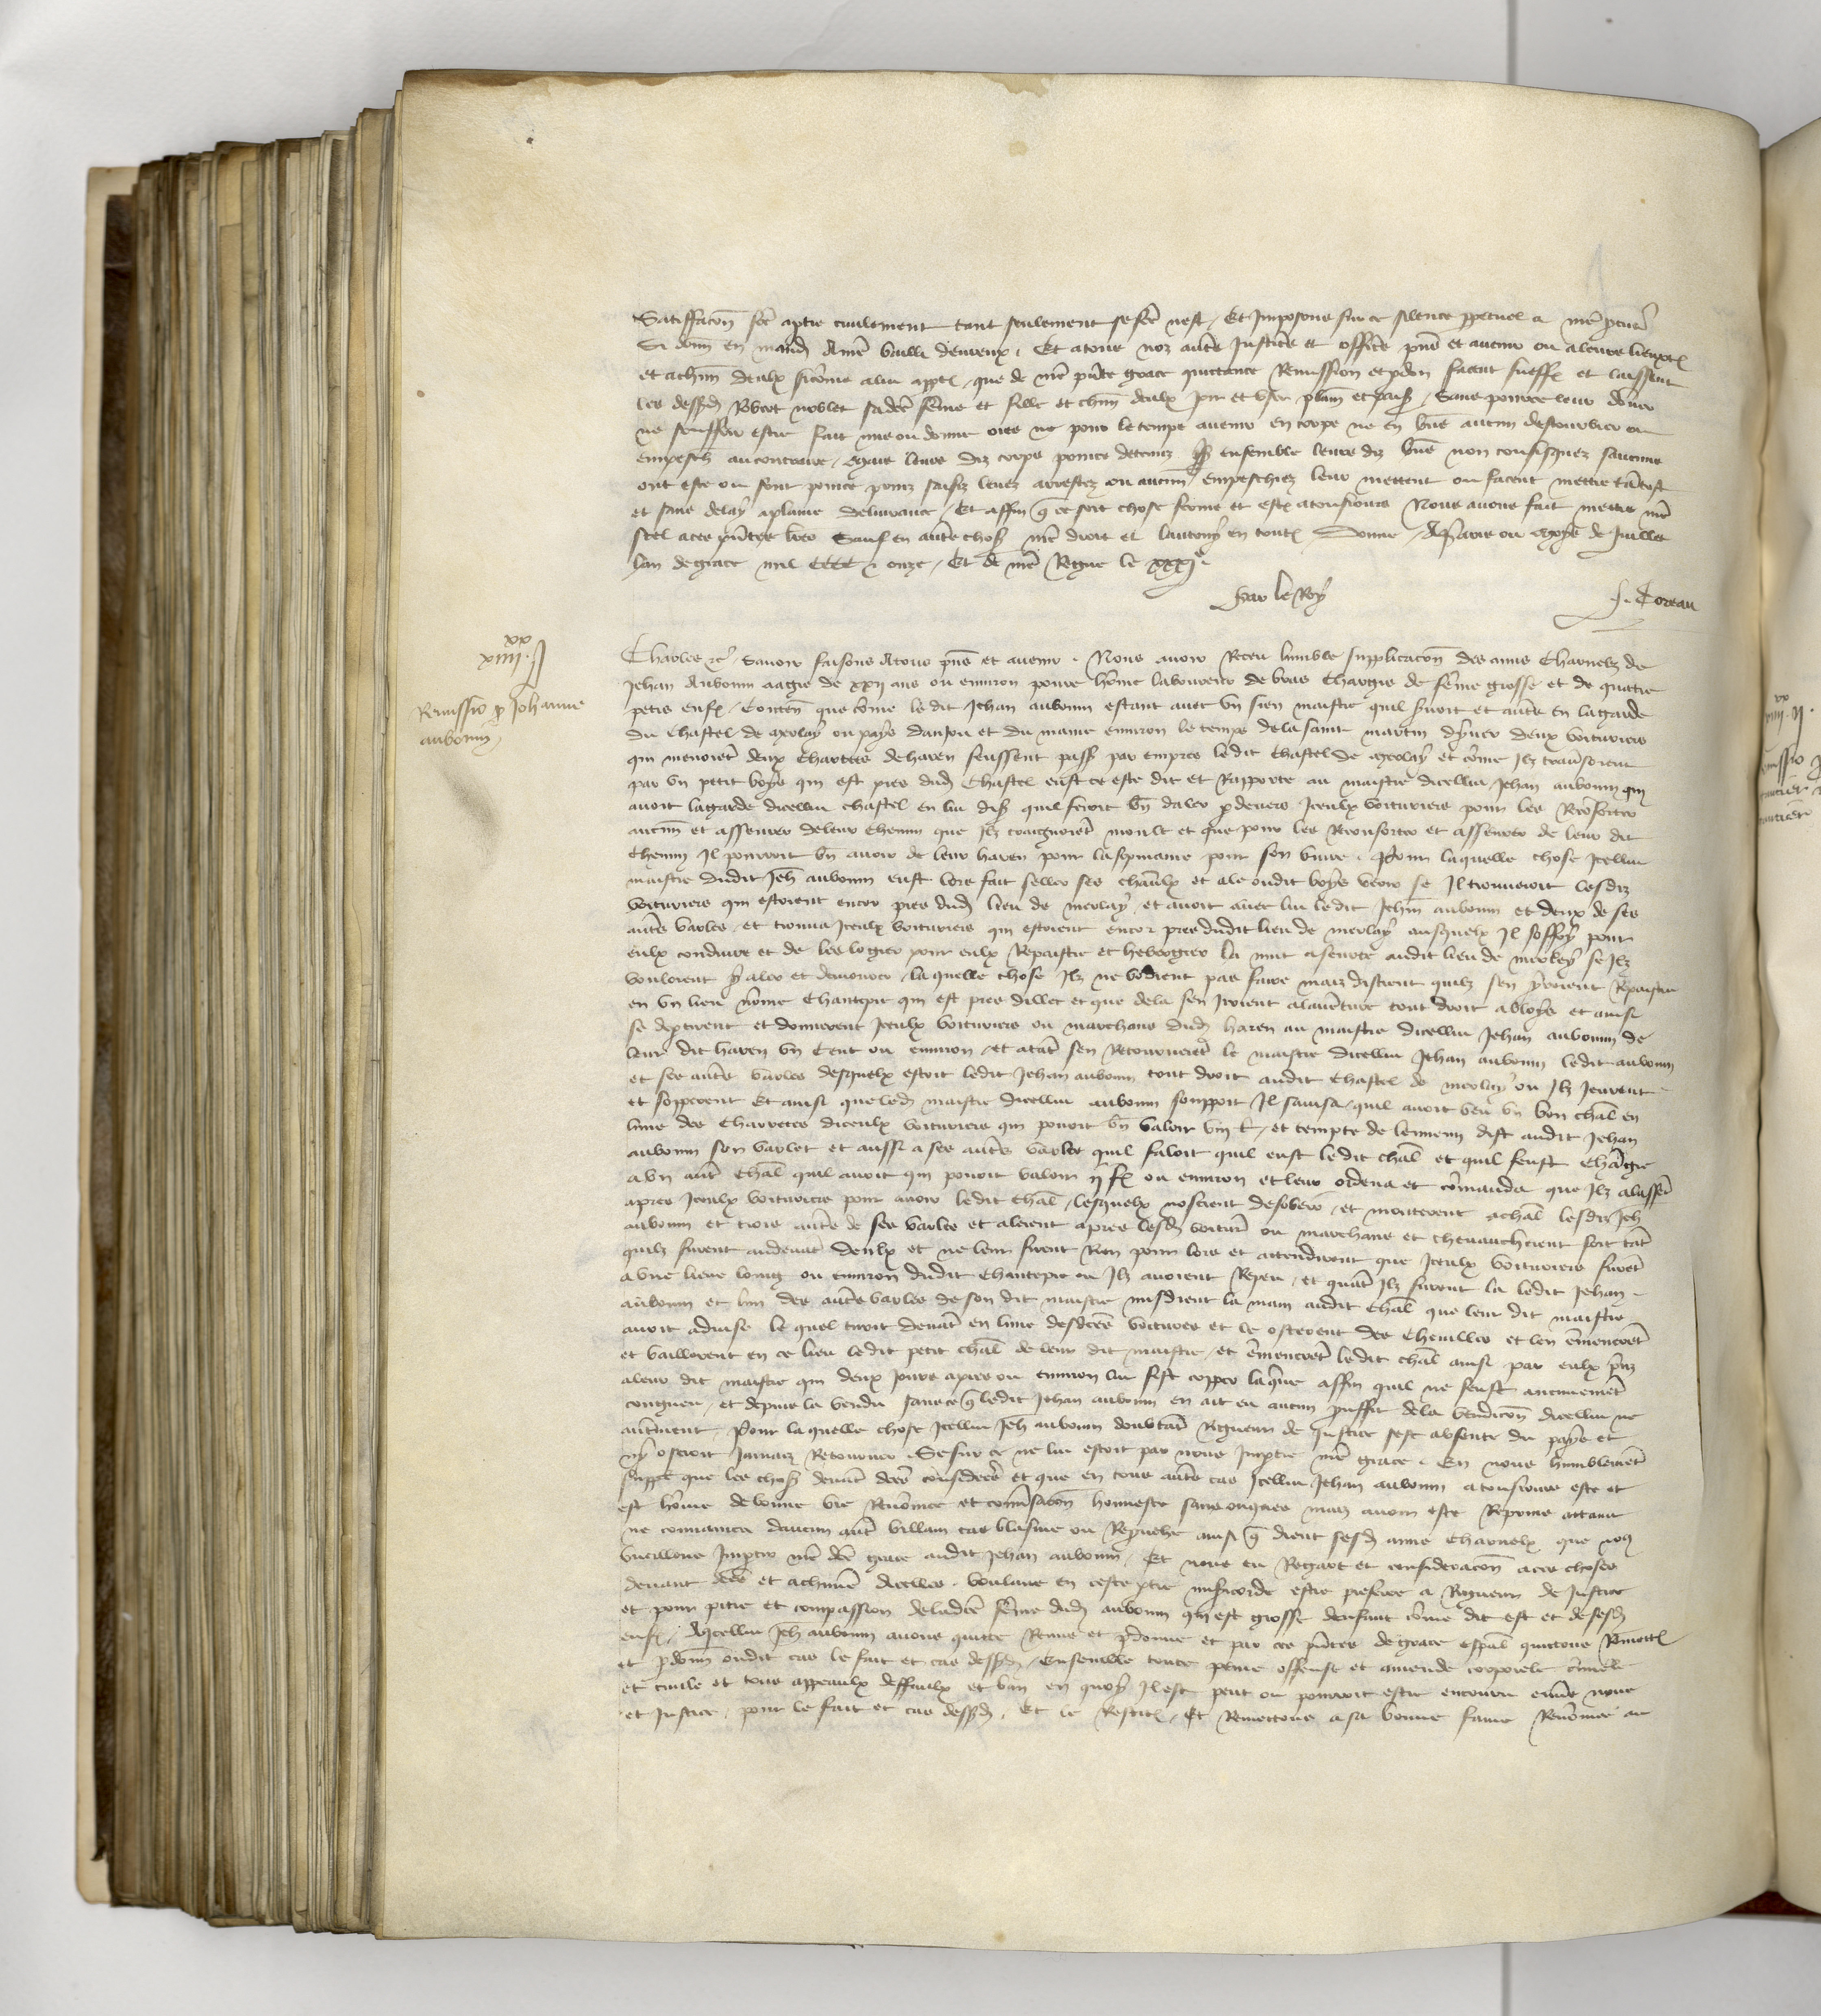 Satisfacōn fcē aptie civilement tant seulement se fcē nest / Et Imposons sur ce silence ppetuel a nrē pcur̄
Si donn en mand Anrē bailli deureux . Et a tous noz autrēs Justiciēs et officiēs pn̄s et avenir ou a leurs lieux
et achūn deulx sicōme a lui app / que de nrē pn̄te grace quictance Remission et pdon facent sueff et laissent
les dess Robert noblet sa dcē fēme et fille et chūn deulx Joir et user plain et paisib / Sans pour ce leur dōner
ne souffrir estre fait mis ou donne ores ne pour le temps avenir en corps ne en biēs aucun destourbier ou
empesch au contraire / Mais leurs diz corps pour ce detenuz ensemble leurs diz biēs non confisquez saucuns
ont este ou sont pour ce prinz saisiz levez arrestez ou aucun empeschez leur mettent ou facent mettre tātost
et sans delay a plaine delivrance / Et affin q̄ ce soit chose ferme et est a tousiours Nous avons fait mettre nrē
seel a ces pn̄tes lrēs Sauf en autrēs chos nrē droit et lautruy en tout Donne A paris ou moys de Juillet
Lan de grace mil CCCC et onze / Et de nrē Regne le xxxj e
Par le Roy J. Coreau
xx
xiiii . j
Remissio p Johanne
aubouin
Charles etc̄ Savoir faisons A tous pn̄s et avenir . Nous avoir Receu lumble supplicacōn des amis Charnelz de
Jehan Aubouin aagie de xxij ans ou environ povre hōme laboureur de bras Chargie de fēme grosse et de quatre
petis enf / Conten̄ que cōme le dit Jehan aubouin estant avec un sien maistre quil servoit et autrēs en la garde
du Chastel de Merlay ou pays danjou et du maine environ le temps de la saint martin dyver deux voicturiers
qui menoient deux Charretes de haren feussent pass par empres le dit Chastel de Merlay et cōme Ilz trav̄soient
par un petit boys qui est pres dud Chastel eust ce este dit et Rapporte au maistre dicellui Jehan aubouin qui
avoit la garde dicellui chastel en lui dis quil feroit bn̄ daler p devers Iceulx voicturiers pour les Recōforter
aucun et asseurer de leur Chemin que Ilz craignoient moult et que pour les Reconforter et asseurer de leur dit
Chemin Il pourroit bn̄ avoir de leur haren pour la sepmaine pour son vivre . Pour laquelle chose Icellui
maistre dudit Jeh aubouin eust lors fait seller ses chaūlx et ale oudit boys veoir se Il trouveroit lesdiz
voicturiers qui estoient encor pres dud lieu de Merlay / et avoit avec lui le dit Jehan aubouin et deux de ses
autrēs varles / et trouva Iceulx voicturiers qui estoient encor pres dudit lieu de Merlay ausquelx Il soffry pour
eulx conduire et de les logier pour eulx Repaistre et hebergier la nuit a seurte audit lieu de Merlay se Ilz
vouloient y aler et demourer / la quelle chose Ilz ne voldrent pas faire maiz distrent quilz sen yroient Repaistre
en un lieu nōme Chantepie qui est pres dillec et que de la sen Iroient a lavēture tout droit a bloys et ainsi
se deptirent et donnerent Iceulx voicturiers ou marchans dud haren au maistre dicellui Jehan aubouin de
leur dit haren un Cent ou environ / et atāt sen Retournerēt le maistre dicellui Jehan aubouin ledit aubouin
et ses autrēs varles desquelx estoit ledit Jehan aubouin tout droit audit Chastel de Merlay ou Ilz
et soupperent Et ainsi que led maistre dicellui aubouin souppoit Il savisa / quil avoit veu un bon chāl en
lune des Charretes diceulx voicturiers qui povoit bn̄ valoir / et tempte de lennemi dist audit Jehan
aubouin son varlet et aussi a ses autrēs varles quil faloit quil eust ledit chāl et quil feust Chāgie
a un autrē Chāl quil avoit qui povoit valoir ij f ou environ et leur ordena et cōmanda que Ilz alassēt
apres Iceulx voicturiers pour avoir ledit Chāl / lesquelx noserent desobeir / et monterent a chāl lesdiz Jeh
aubouin et trois autrēs de ses varles et alerent apres lesd voictur ou marchans et chevaucherent fort tāt
quilz furent audevāt deulx et ne leur firent Rien pour lors et attendirent que Iceulx voicturiers furēt
a une lieue loing ou environ dudit Chantepie ou Ilz avoient Repeu / et quāt Ilz furent la ledit Jehan
aubouin et lun des autrēs varles de son dit maistre misdrent la main audit Chāl que leur dit maistre
avoit advise le quel tiroit devāt en lune desdcēs voictures et le osterent des Chevilles et len ēmenerēt
et baillerent en ce lieu ledit petit chāl de leur dit maistre / et ēmenerēt ledit chāl ainsi par eulx prīz
a leur dit maistre qui deux jours apres ou environ lui fist copper la queue affin quil ne feust aucunemēt
congneu / et depuis la vendu sans ce q̄ ledit Jehan aubouin en ait eu aucun prouffit de la vendicōn dicellui ne
autrēment . Pour la quelle chose Icellui Jeh aubouin doubtāt Rigueur de Justice sest absente du pays et
ny oseroit Jamaiz Retourner . Se sur ce ne lui estoit par nous Imptie nrē grace . En nous humblemēt
supp̄ que les chos devāt dcēs consideres et que en tous autrēs cas Icellui Jehan aubouin a tousiours este et
est hōme de bonne vie Renōmee et conv̄sacōn honneste sans onques maiz avoir este Reprins attaint
ne convaincu daucun autrē villain cas blasme ou Repruche ainsi q̄ dient sesd amis Charnelx que nous
vueillons Imptir nrē dcē grace audit Jehan aubouin / Et nous eu Regart et consideracōn a ces choses
devant dcēs et a chune dicelles . voulans en ceste ptie mis̄icorde estre preferee a Rigueur de Justice
et pour pitie et compassion de ladcē fēme dud aubouin qui est grosse denfant cōme dit est et de sesd
enf / A Icellui Jeh aubouin avons quicte Remis et pdonne et par ces pn̄tes de grace espāl quictons Remett
et pdonn oudit cas le fait et cas dess / Ensemble toute peine offense et amende corporele crīnele
et civile et tous appeaulx deffaulx et ban en quoy Il est peut ou pourroit estre encouru envs nous
et Justice . pour le fait et cas dess . Et le Restit / Et Remettons a sa bonne fame Renōmee au